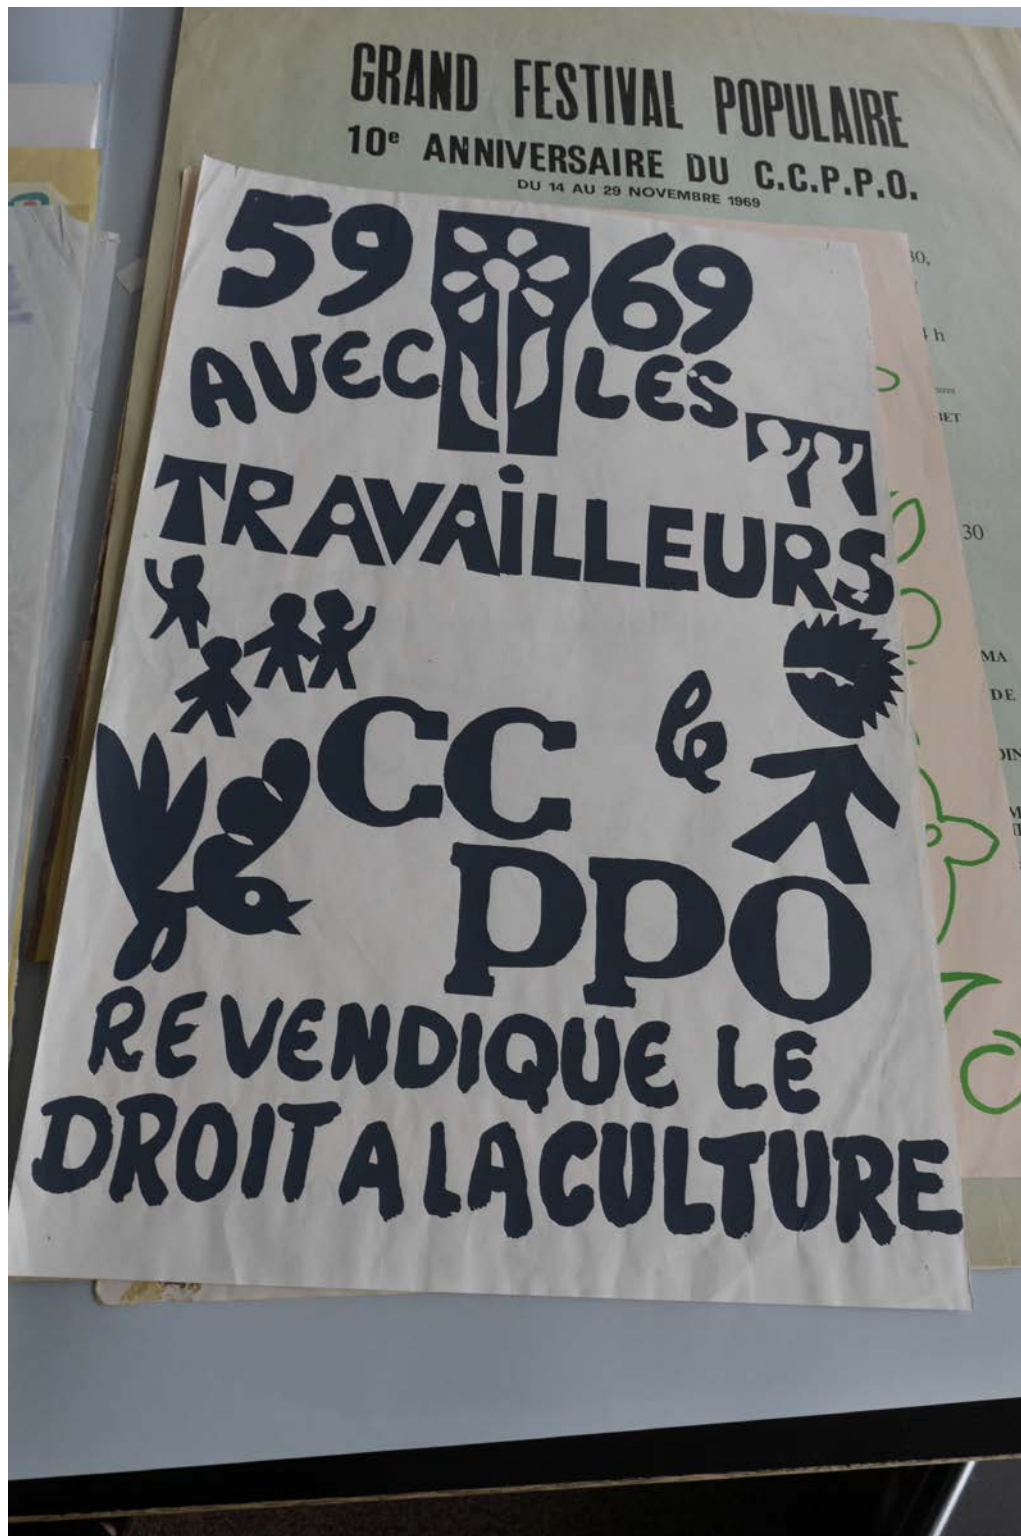 GRAND FESTIVAL POPULAIRE
10e ANNIVERSAIRE DU C.C.P.P.O.
DU 14 AU 29 NOVEMBRE 1969
59 69
AVEC LES
TRAVAiLLEURS
le
CC
PPO
REVENDIQUE LE
DROIT A LA CULTURE
30,
h
30
MA
DE